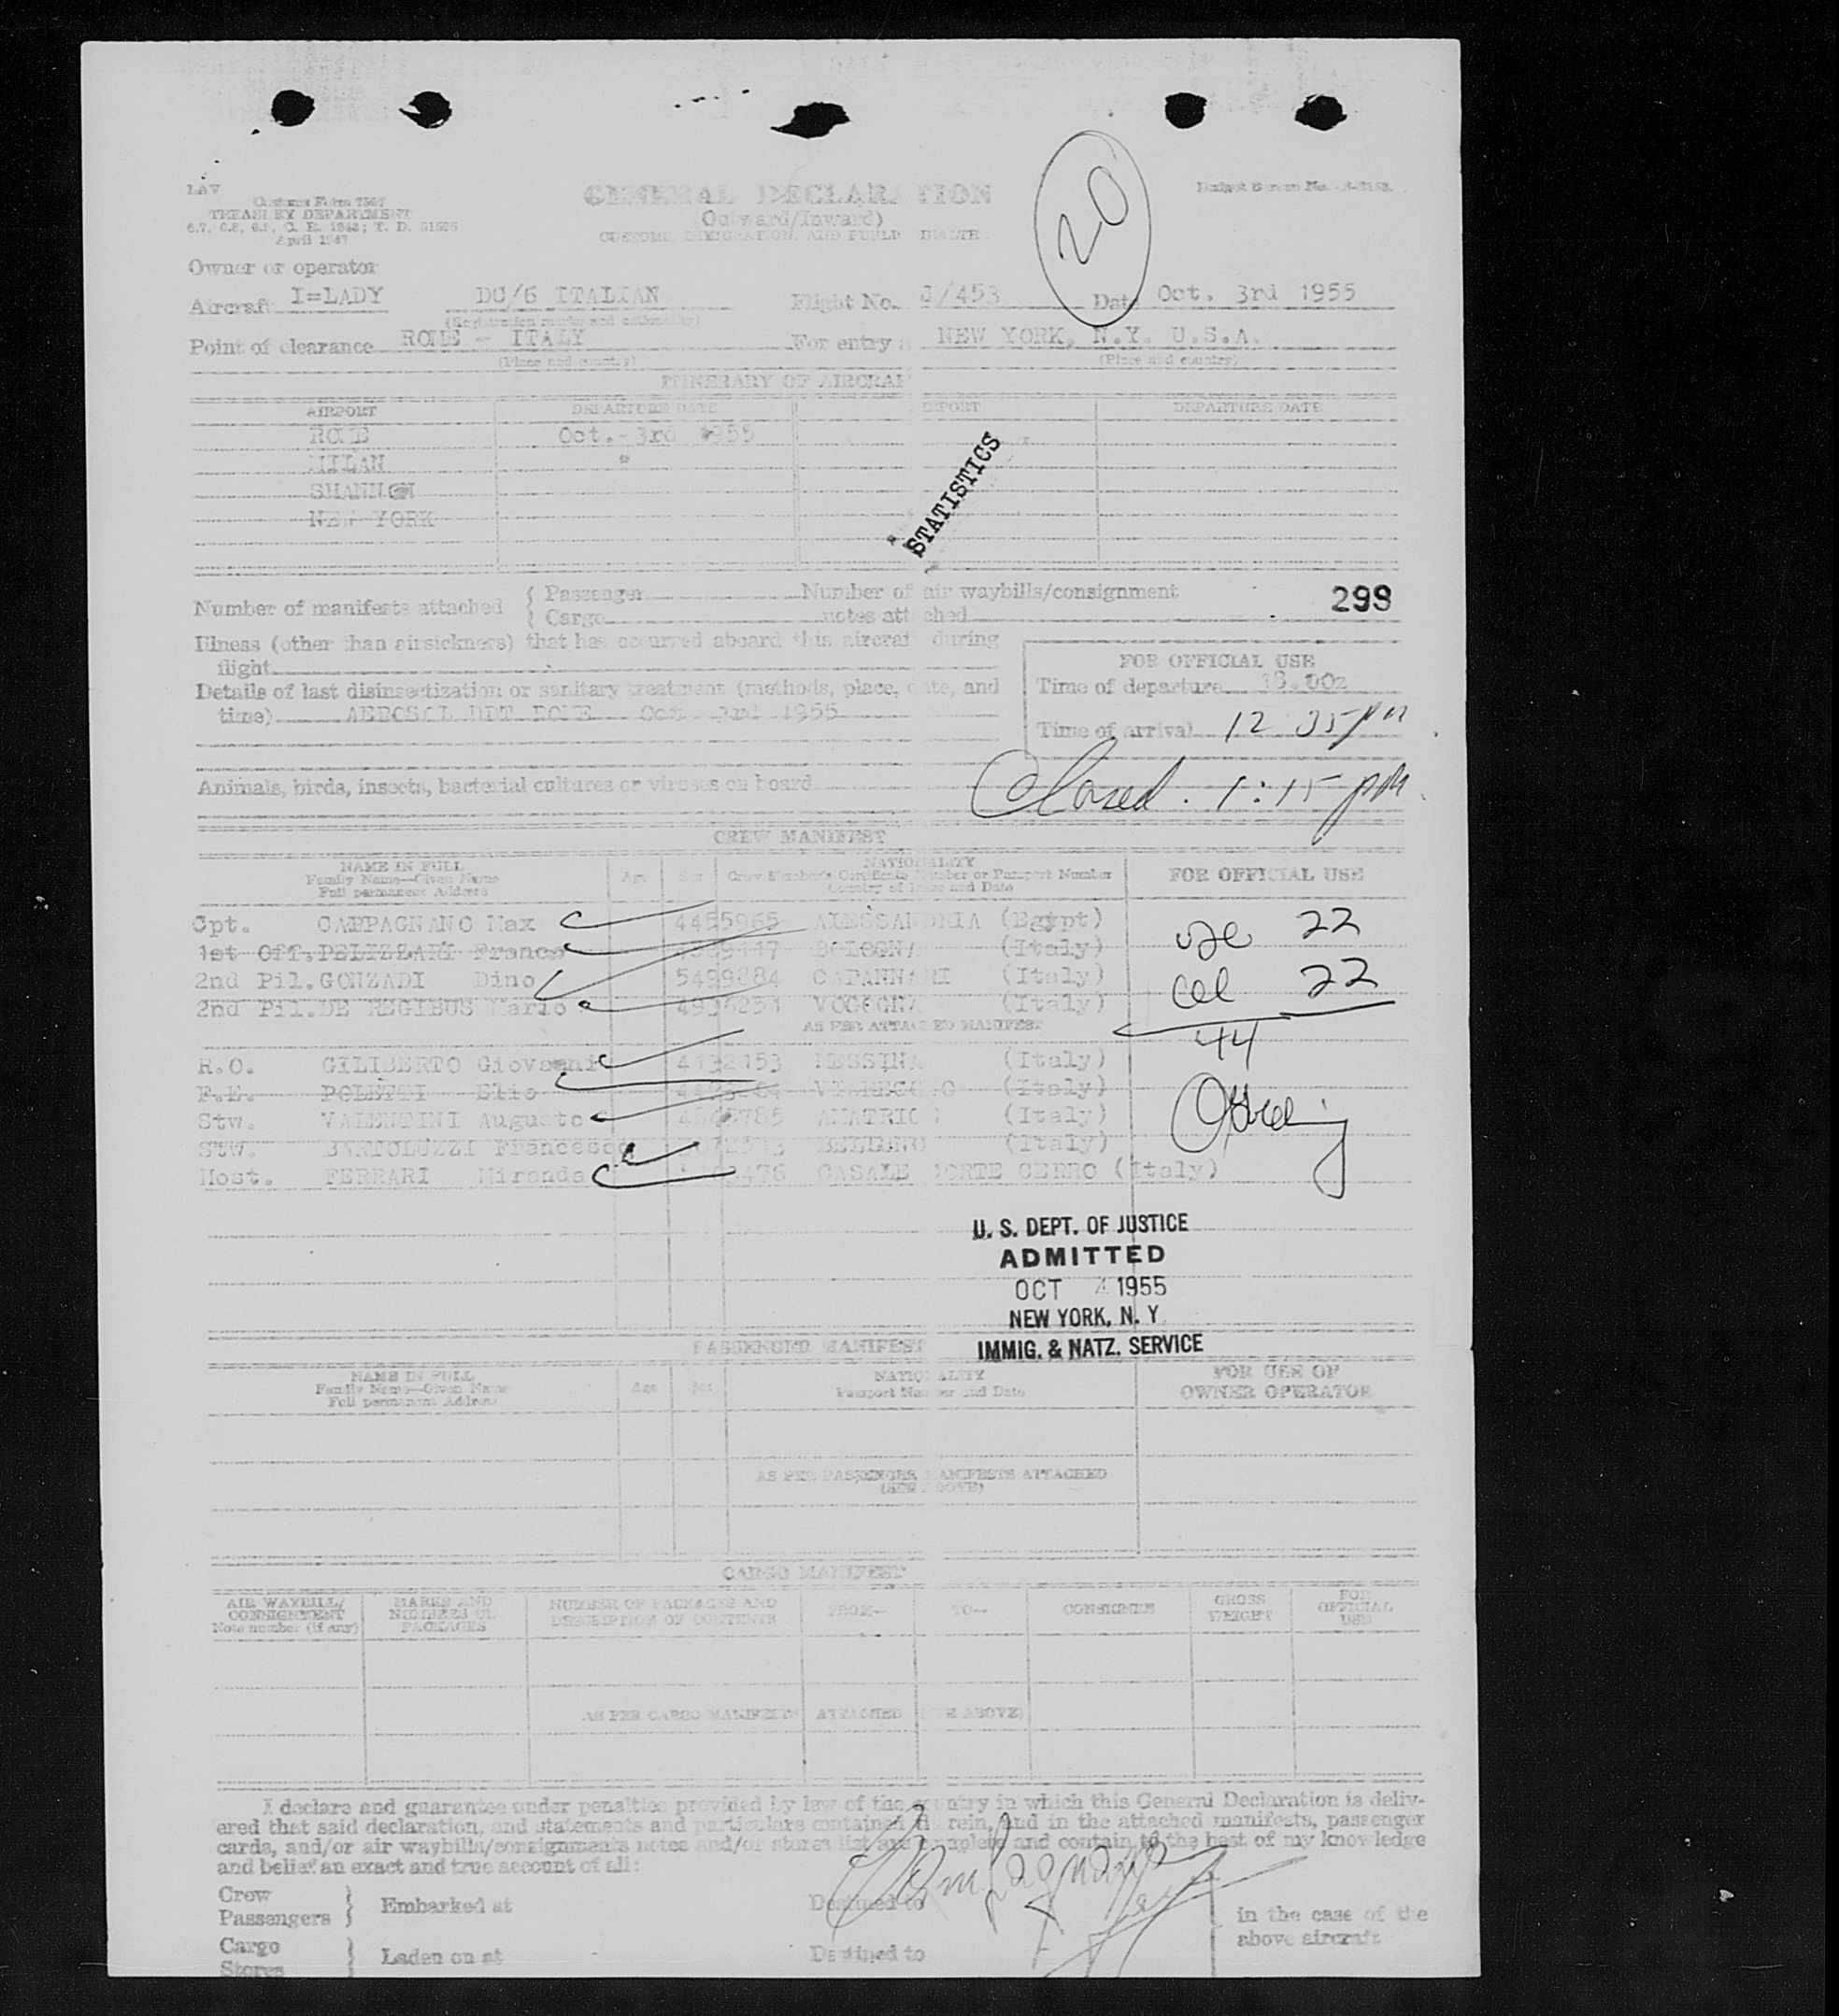 LAV
Customs Form 7507
TREASURY DEPARTMENT
April 1947
GENERAL DECLARATION
(Outward/Inward)
CUSTOMS, IMMIGRATION, AND PUBLIC HEALTH
20
Budget Bureau No.
Owner or operator
Aircraft I=LADY DC/6 ITALIAN Flight No. J/453 Date Oct. 3rd 1955
(Registration marks and nationality)
Point of clearance ROME - ITALY For entry at NEW YORK, N.Y. U.S.A.
(Place and country) (Place and country)
ITINERARY OF AIRCRAFT
AIRPORT DEPARTURE DATE AIRPORT DEPARTURE DATE
ROME Oct. 3rd 1955
MILAN "
SHANNON
NEW YORK
STATISTICS
Number of manifests attached { Passenger Number of air waybills/consignment
{ Cargo notes attached
298
Illness (other than airsickness) that has occurred aboard this aircraft during
flight
FOR OFFICIAL USE
Details of last disinsectization or sanitary treatment (methods, place, date, and
time) AEROSOL DDT ROME Oct. 3rd 1955
Time of departure 18.00z
Time of arrival 12 35 pm
Animals, birds, insects, bacterial cultures or viruses on board
Closed. 1:15 pm
CREW MANIFEST
NAME IN FULL
Family Name—Given Name
Full permanent Address
Age Sex
NATIONALITY
Crew Member's Certificate Number or Passport Number
Country of Issue and Date
FOR OFFICIAL USE
Cpt. CAMPAGNANO Max 4455965 ALESSANDRIA (Egypt)
1st Off. PELIZZARI Franco BOLOGNA (Italy)
2nd Pil. GONZADI Dino 5499884 CAPANNORI (Italy)
2nd Pil. DE REGIBUS Mario VOGOGNA (Italy)
AS PER ATTACHED MANIFEST
R.O. GILIBERTO Giovanni 4132153 MESSINA (Italy)
F.E. Elio VIAREGGIO (Italy)
Stw. VALENTINI Augusto AMATRICE (Italy)
Stw. BERTOLUZZI Francesco BELLUNO (Italy)
Host. FERRARI Miranda CASALE CORTE CERRO (Italy)
use 22
cel 22
44
U. S. DEPT. OF JUSTICE
ADMITTED
OCT 4 1955
NEW YORK, N. Y.
IMMIG. & NATZ. SERVICE
PASSENGER MANIFEST
NAME IN FULL
Family Name—Given Name
Full permanent Address
Age Sex
NATIONALITY
Passport Number and Date
FOR USE OF
OWNER OPERATOR
AS PER PASSENGER MANIFESTS ATTACHED
(SEE ABOVE)
CARGO MANIFEST
AIR WAYBILL/
CONSIGNMENT
Note number (if any)
MARKS AND
NUMBERS ON
PACKAGES
NUMBER OF PACKAGES AND
DESCRIPTION OF CONTENTS
FROM— TO— CONSIGNEE
GROSS
WEIGHT
FOR
OFFICIAL
USE
AS PER CARGO MANIFESTS ATTACHED (SEE ABOVE)
I declare and guarantee under penalties provided by law of the country in which this General Declaration is deliv-
ered that said declaration, and statements and particulars contained therein, and in the attached manifests, passenger
cards, and/or air waybills/consignments notes and/or stores list are complete and contain to the best of my knowledge
and belief an exact and true account of all:
Crew
Passengers } Embarked at Destined to
in the case of the
above aircraft
Cargo
Stores } Laden on at Destined to